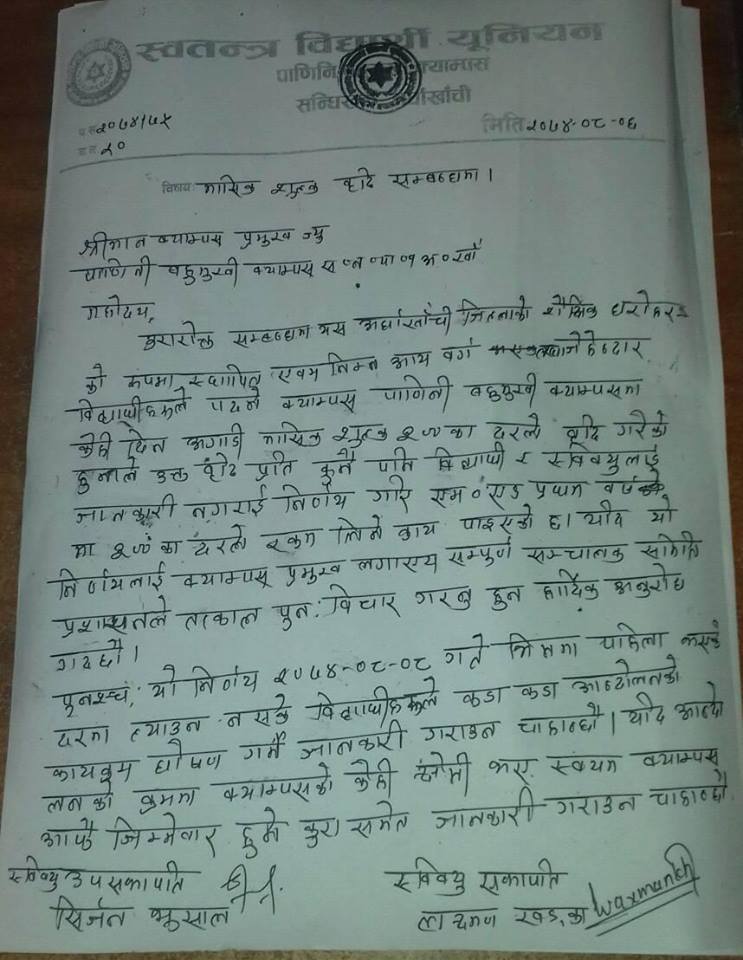 स्वतन्त्र विद्यार्थी यूनियन
पाणिनि क्याम्पस
सन्धिख र्घाखाँची
प.स २०७४/७५
च.न. २०
मिति २०७४-०८-०६
विषय: मासिक शुल्क वृद्दि सम्बन्धमा ।
श्रीमान क्याम्पस प्रमुख ज्यु
पाणिनी बहुमुखी क्याम्पस
महोदय,
सम्बन्धमा यस अर्घाखाँची जिल्लाको शैक्षिक धरोहर
को रुपमा स्थापित एवम निम्न आय वर्ग
विद्यार्थीहरूले पढ्ने क्याम्पस पाणिनी बहुमुखी क्याम्पसमा
केही दिन अगाडी मासिक शुल्क का दरले वृद्दि गरेको
हुनाले उक्त वृद्दि प्रति कुनै पनि विद्यार्थी र स्ववियुलाई
जानकारी नगराई निर्णय गरि एम०एड प्रथम वर्ष
मा का दरले रकम लिने काय पाइएको छ। यदि यो
निर्णयलाई क्याम्पस प्रमुख लगाएत सम्पुर्ण सन्चालक समिति
प्रशासनले तत्काल पुन: विचार गर्नु हुन हार्दिक अनुरोध
गर्दछौ ।
पुनश्च: यो निर्णय २०७४-०८-०८ गते भित्रमा पहिला कसकै
दरमा ल्याउन नसके विद्यार्थीहरूले कडा कडा आन्दोलनको
कायक्रम घोषणा गर्ने जानकारी गराउन चाहान्छौ । यदि आन्दो
लनको क्रममा क्याम्पसको केही क्षेती भए स्वयम क्याम्पस
आफै जिम्मेवार हुने कुरा समेत जानकारी गराउन चाहान्छौ
स्ववियु उपसभापति
सिर्जन भुसाल
स्ववियु सभापति
लक्ष्मण खड्का